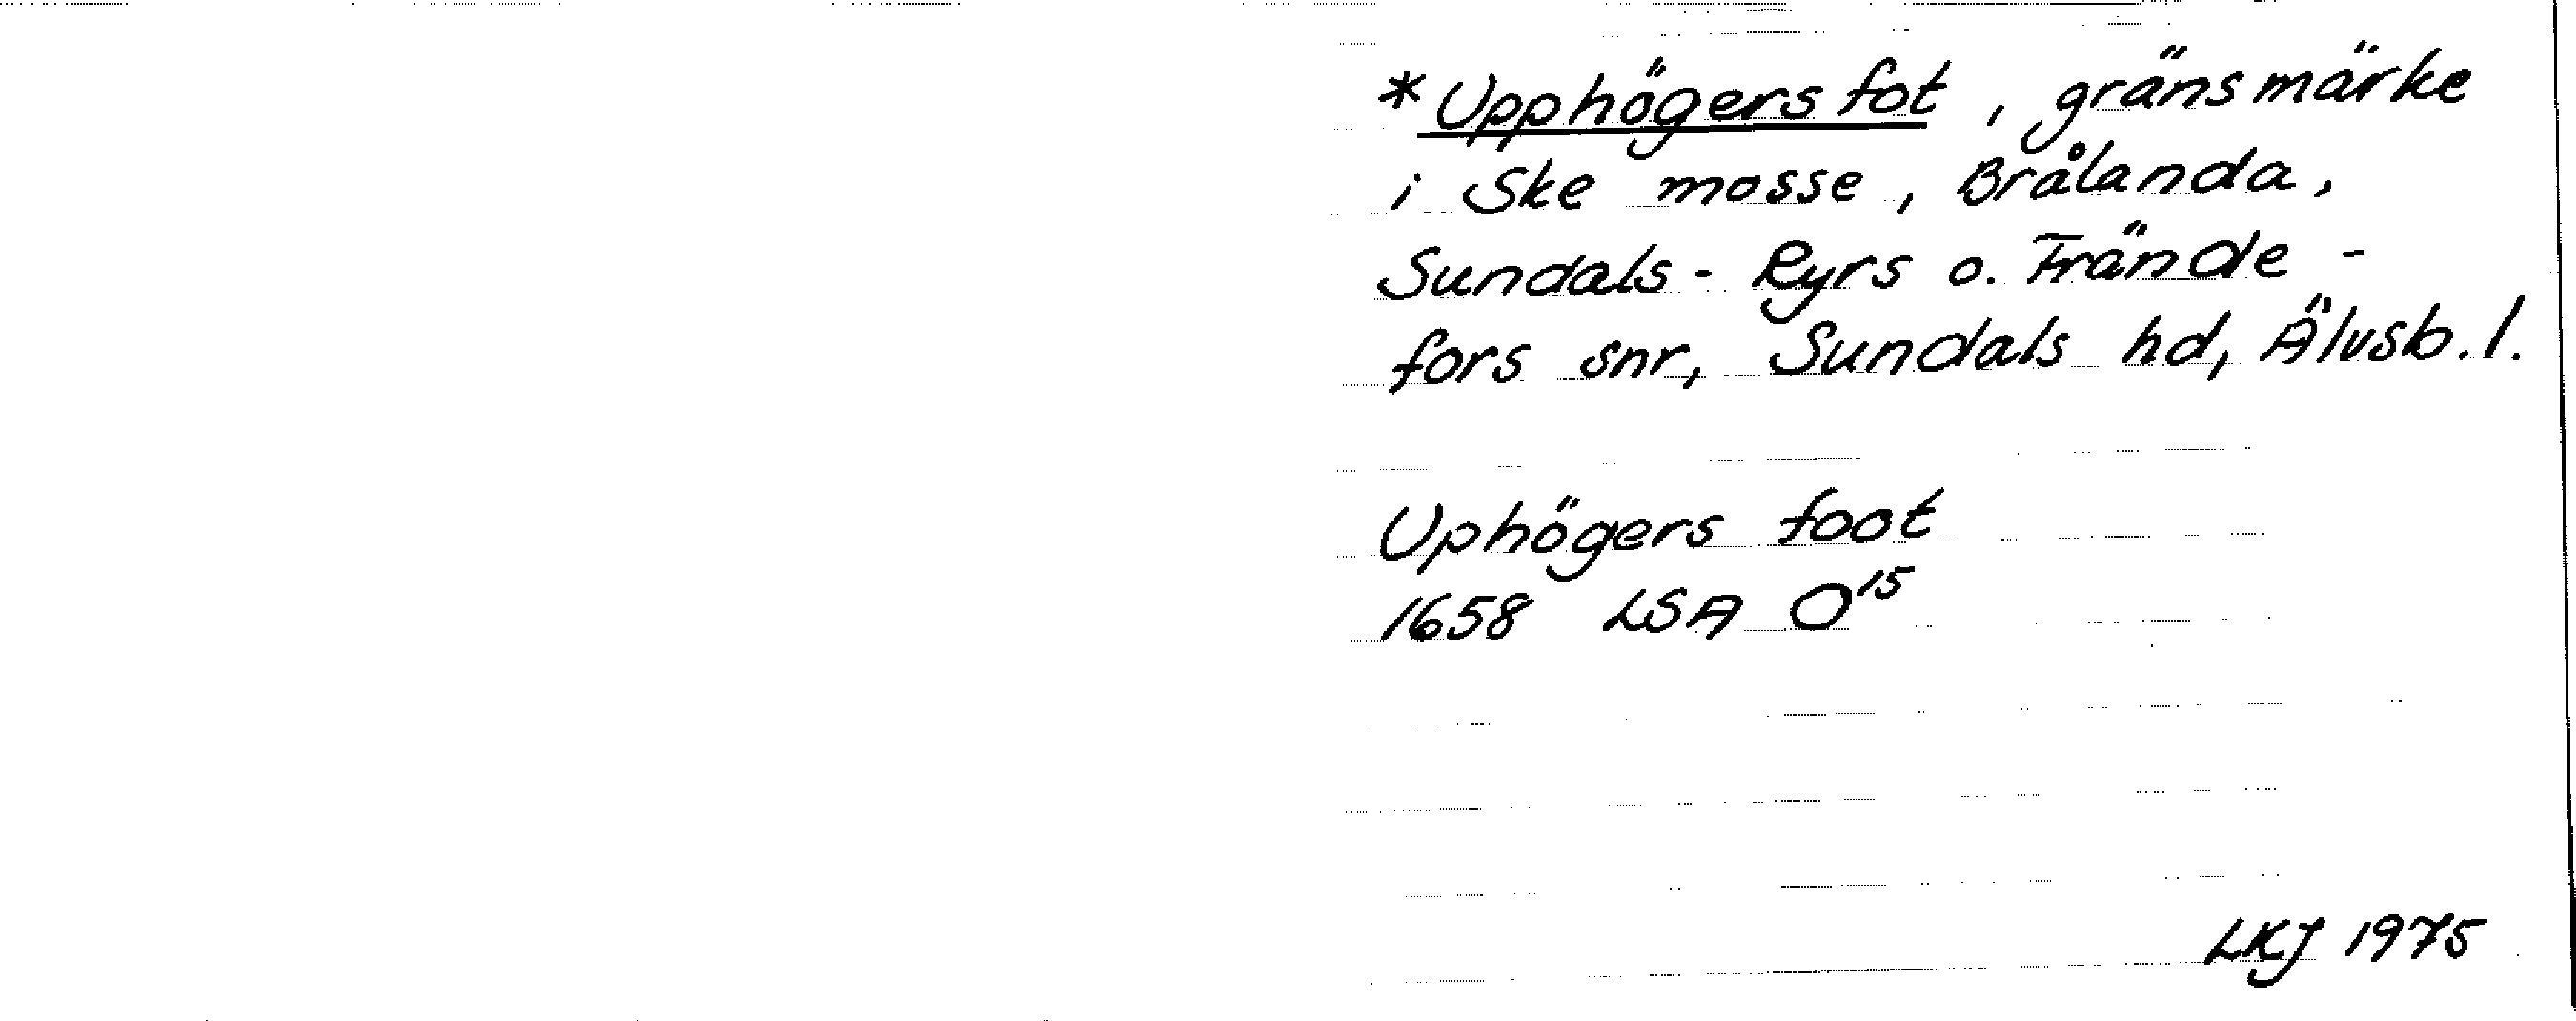 *Upphögers fot, gränsmärke
i Ske mosse, Brålanda,
Sundals-Ryrs o. Frände-
fors snr, Sundals hd, Älvsb.l.
Uphögers foot
1658 LSA O15
LKJ 1975